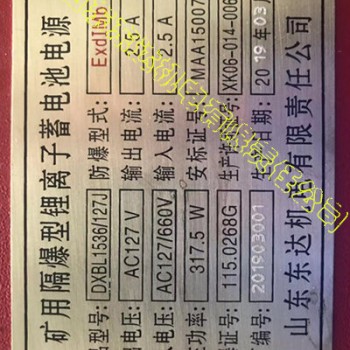 矿用隔爆型锂离子蓄电池电源
品型号: DXBL1536/127J 防爆型式: ExdIMb
出电压: AC127 V 输出电流: 2.5 A
入电压: AC127/660V 输入电流: 2.5 A
功率: 317.5 W 安标证号: MAA15007
证号: 115.0268G 生产许 XK06-014-006
编号: 201903001 生产日期: 2019 03
山东东达机电有限责任公司